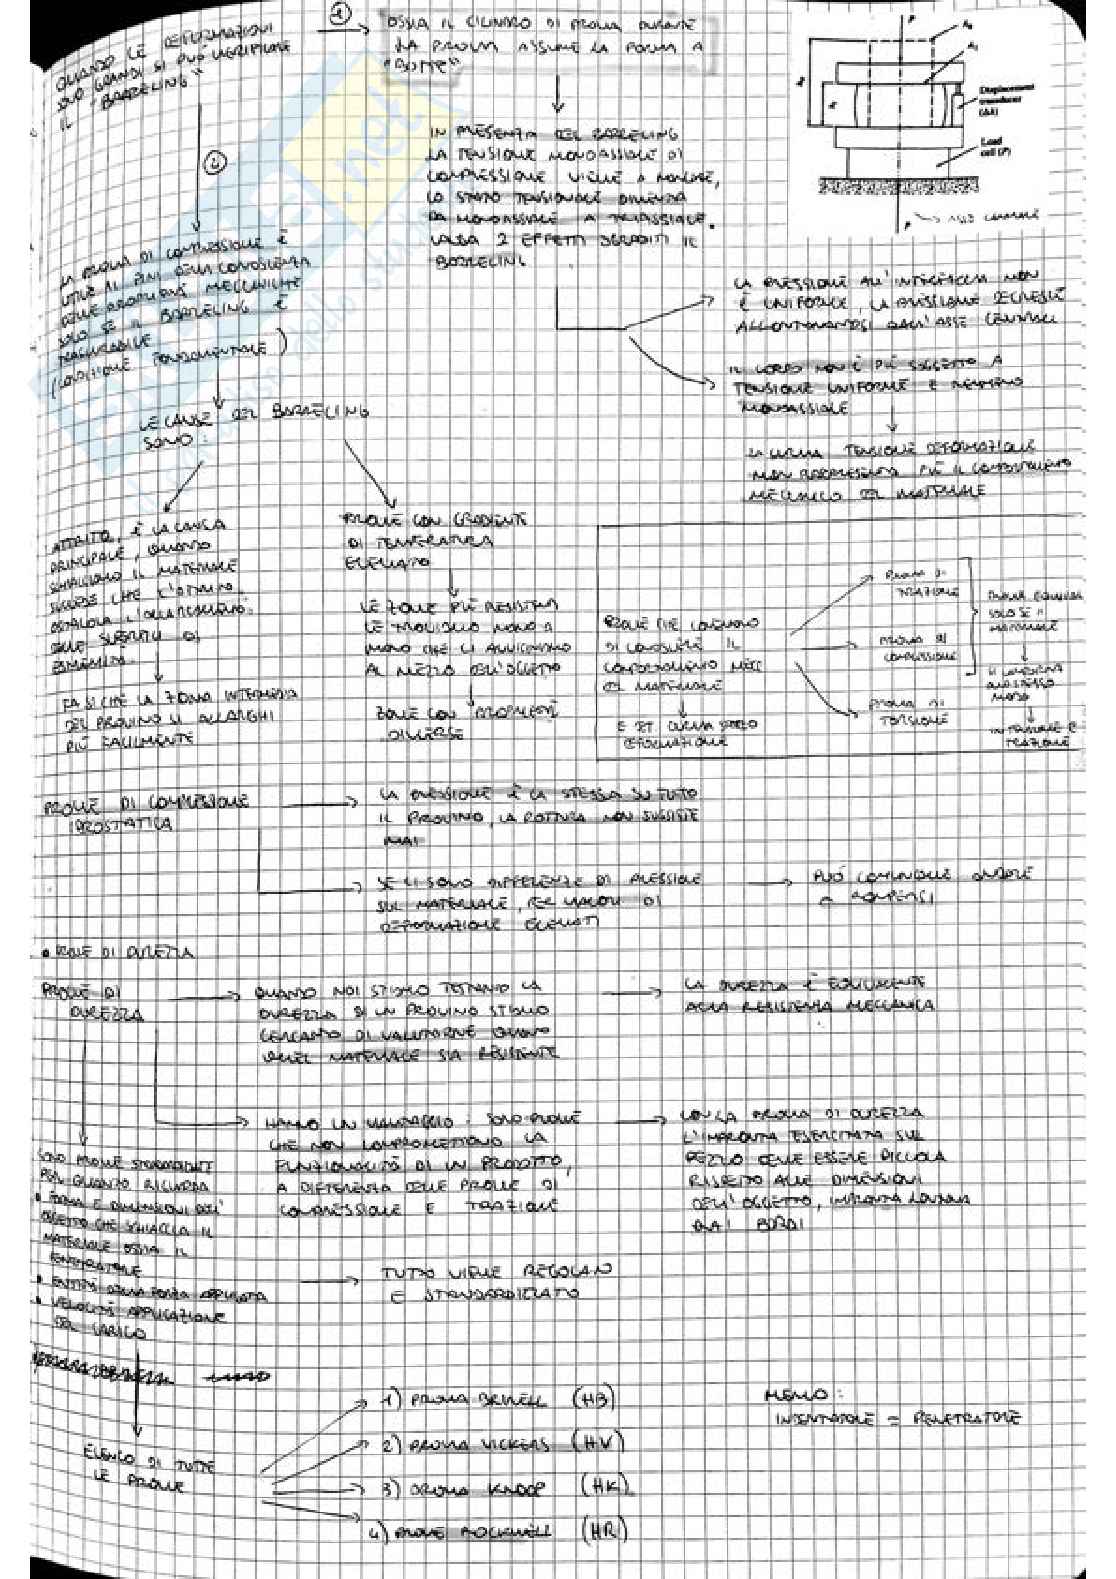 QUANDO LE DEFORMAZIONI
SONO GRANDI SI PUÒ VERIFICARE
IL "BARRELING"
1
OSSIA IL CILINDRO DI PROVA DURANTE
LA PROVA ASSUME LA FORMA A
"BOTTE"
P
A₀
A₁
Displacement
transducer
(Δh)
Load
cell (P)
P
ASSE CENTRALE
IN PRESENZA DEL BARRELING
LA TENSIONE MONOASSIALE DI
COMPRESSIONE VIENE A MANCARE,
LO STATO TENSIONALE DIVENTA
DA MONOASSIALE A TRIASSIALE.
CAUSA 2 EFFETTI SGRADITI IL
BARRELING.
2
LA PROVA DI COMPRESSIONE È
UTILE AI FINI DELLA CONOSCENZA
DELLE PROPRIETÀ MECCANICHE
SOLO SE IL BARRELING È
TRASCURABILE
(CONDIZIONE FONDAMENTALE)
LA PRESSIONE ALL'INTERFACCIA NON
È UNIFORME, LA PRESSIONE DECRESCE
ALLONTANANDOSI DALL'ASSE CENTRALE
IL CORPO NON È PIÙ SOGGETTO A
TENSIONE UNIFORME E NEMMENO
MONOASSIALE
LA CURVA TENSIONE DEFORMAZIONE
NON RAPPRESENTA PIÙ IL COMPORTAMENTO
MECCANICO DEL MATERIALE
LE CAUSE DEL BARRELING
SONO:
ATTRITO, È LA CAUSA
PRINCIPALE, QUANDO
SCHIACCIAMO IL MATERIALE
SUCCEDE CHE L'ATTRITO
OSTACOLA L'ALLARGAMENTO
DELLE SUPERFICI DI
ESTREMITÀ.
FA SÌ CHE LA ZONA INTERMEDIA
DEL PROVINO SI ALLARGHI
PIÙ FACILMENTE
PROVE CON GRADIENTE
DI TEMPERATURA
ELEVATO
LE ZONE PIÙ RESISTENTI
LE TROVIAMO MANO A
MANO CHE CI AVVICINIAMO
AL MEZZO DELL'OGGETTO
ZONE CON PROPRIETÀ
DIVERSE
PROVE CHE CONSENTONO
DI CONOSCERE IL
COMPORTAMENTO MECC
DEL MATERIALE
E DET CURVA SFORZO
DEFORMAZIONE
PROVA DI
TRAZIONE
PROVA DI
COMPRESSIONE
PROVA DI
TORSIONE
SOLO SE IL
MATERIALE
SI COMPORTA
ALLO STESSO
MODO
E
TRAZIONE
PROVE DI COMPRESSIONE
IDROSTATICA
LA PRESSIONE È LA STESSA SU TUTTO
IL PROVINO, LA ROTTURA NON SUSSISTE
MAI
SE CI SONO DIFFERENZE DI PRESSIONE
SUL MATERIALE, PER VALORI DI
DEFORMAZIONE ELEVATI
PUÒ COMUNQUE ANDARE
A ROMPERSI
• PROVE DI DUREZZA
PROVE DI
DUREZZA
QUANDO NOI STIAMO TESTANDO LA
DUREZZA DI UN PROVINO STIAMO
CERCANDO DI VALUTARNE QUANTO
QUEL MATERIALE SIA RESISTENTE
LA DUREZZA È EQUIVALENTE
ALLA RESISTENZA MECCANICA
HANNO UN VANTAGGIO: SONO PROVE
CHE NON COMPROMETTONO LA
FUNZIONALITÀ DI UN PRODOTTO,
A DIFFERENZA DELLE PROVE DI
COMPRESSIONE E TRAZIONE
CON LA PROVA DI DUREZZA
L'IMPRONTA ESERCITATA SUL
PEZZO DEVE ESSERE PICCOLA
RISPETTO ALLE DIMENSIONI
DELL'OGGETTO, IMPRONTA LONTANA
DAI BORDI
SONO PROVE STANDARDIZZATE
PER QUANTO RIGUARDA
• FORMA E DIMENSIONI DELL'
OGGETTO CHE SCHIACCIA IL
MATERIALE OSSIA IL
PENETRATORE
• ENTITÀ DELLA FORZA APPLICATA
• VELOCITÀ APPLICAZIONE
DEL CARICO
TUTTO VIENE REGOLATO
E STANDARDIZZATO
ELENCO DI TUTTE
LE PROVE
1) PROVA BRINELL (HB)
2) PROVA VICKERS (HV)
3) PROVA KNOOP (HK)
4) PROVE ROCKWELL (HR)
MEMO:
INDENTATORE = PENETRATORE